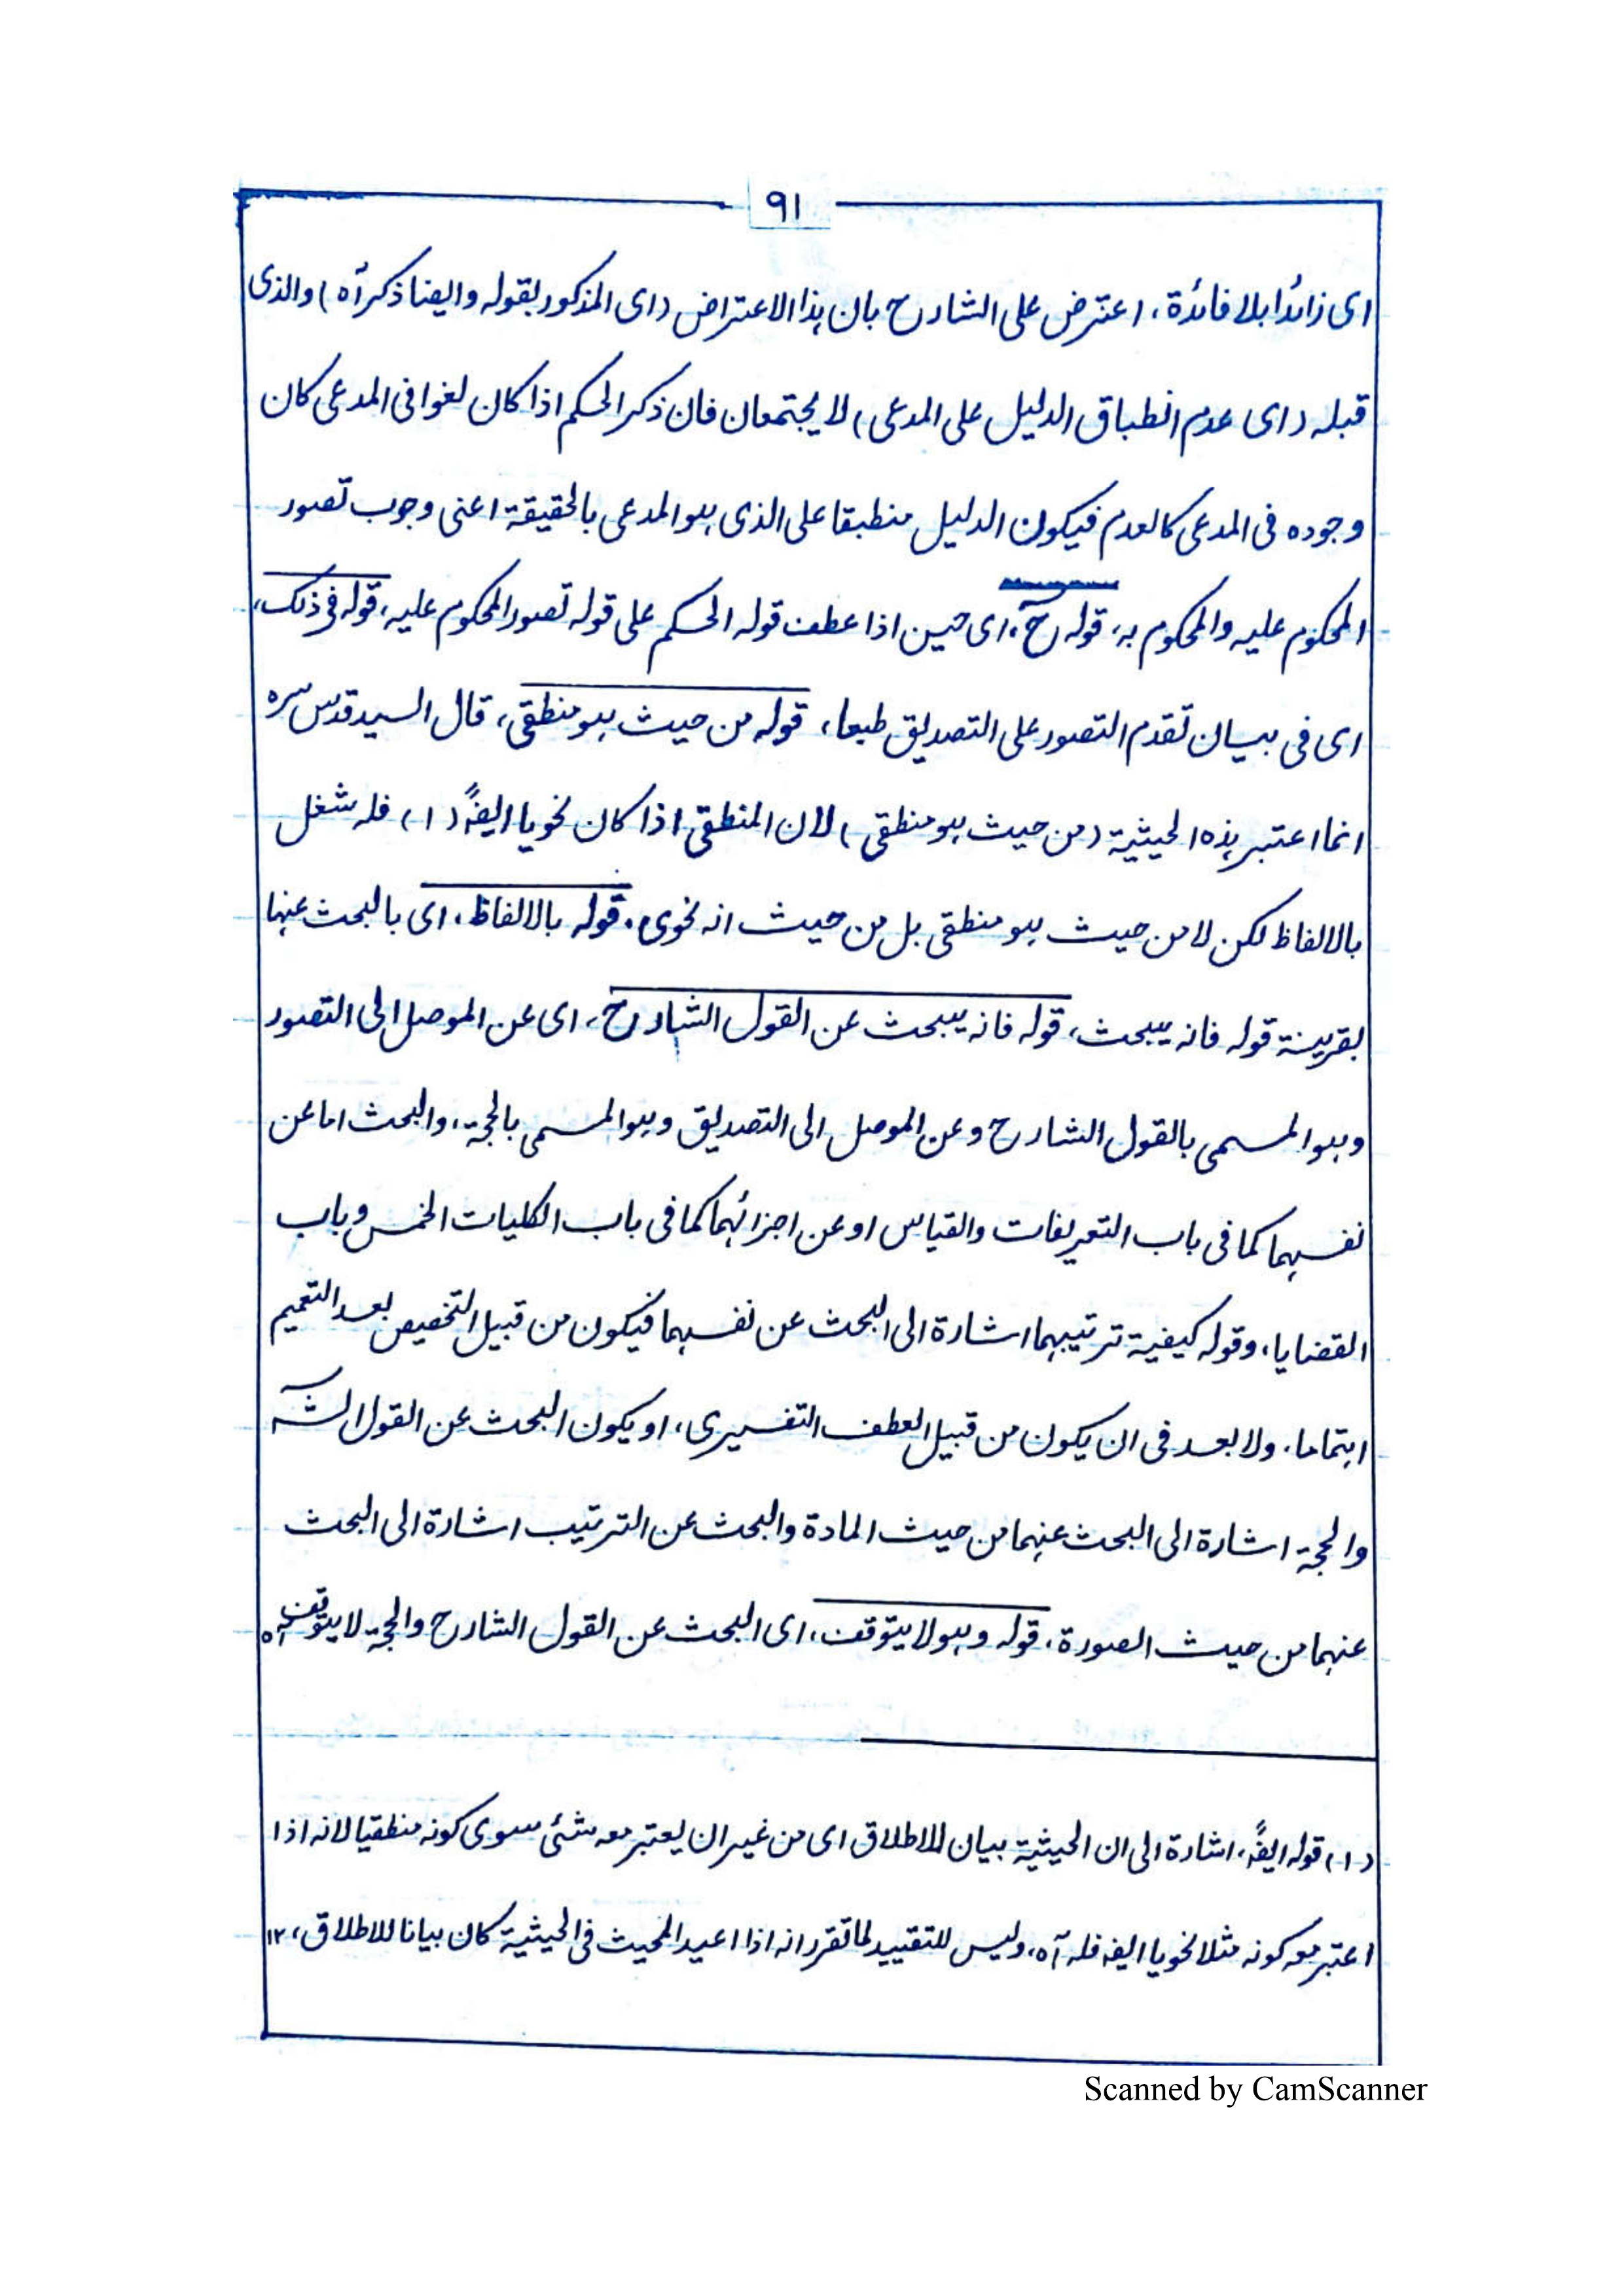 ٩١
ای زائدا بلا فائدة، اعترض علی الشارح بان ہذا الاعتراض (ای المذکور بقولہ وایضا ذکر آہ) والذی
قبلہ (ای عدم انطباق الدلیل علی المدعی) لا یجتمعان فان ذکر الحکم اذا کان لغوا فی المدعی کان
وجودہ فی المدعی کالعدم فیکون الدلیل منطبقا علی الذی ہو المدعی بالحقیقة اعنی وجوب تصور
المحکوم علیہ والمحکوم بہ، قولہ ح، ای حین اذا عطف قولہ الحکم علی قولہ تصور المحکوم علیہ، قولہ فی ذلک،
ای فی بیان تقدم التصور علی التصدیق طبعا، قولہ من حیث ہو منطقی، قال السید قدس سرہ
انما اعتبر ہذہ الحیثیة (من حیث ہو منطقی) لان المنطقی اذا کان نحویا ایضًا (١) فلہ شغل
بالالفاظ لکن لا من حیث ہو منطقی بل من حیث انہ نحوی، قولہ بالالفاظ، ای بالبحث عنہا
بقرینة قولہ فانہ یبحث، قولہ فانہ یبحث عن القول الشارح، ای عن الموصل الی التصور
وہو المسمی بالقول الشارح وعن الموصل الی التصدیق وہو المسمی بالحجة، والبحث اما عن
نفسہما کما فی باب التعریفات والقیاس او عن اجزائہما کما فی باب الکلیات الخمس وباب
القضایا، وقولہ کیفیة ترتیبہما اشارة الی البحث عن نفسہما فیکون من قبیل التخصیص بعد التعمیم
اہتماما، ولا بعد فی ان یکون من قبیل العطف التفسیری، او یکون البحث عن القول الشہ
والحجة اشارة الی البحث عنہما من حیث المادة والبحث عن الترتیب اشارة الی البحث
عنہما من حیث الصورة، قولہ وہو لا یتوقف، ای البحث عن القول الشارح والحجة لا یتوقف آہ
(١) قولہ ایضًا، اشارة الی ان الحیثیة بیان للاطلاق ای من غیر ان یعتبر معہ شئی سوی کونہ منطقیا لانہ اذا
اعتبر معہ کونہ مثلا نحویا ایضہ فلہ آہ، ولیس للتقیید لما تقرر انہ اذا اعید المحیث فی الحیثیة کان بیانا للاطلاق، ١٢
Scanned by CamScanner